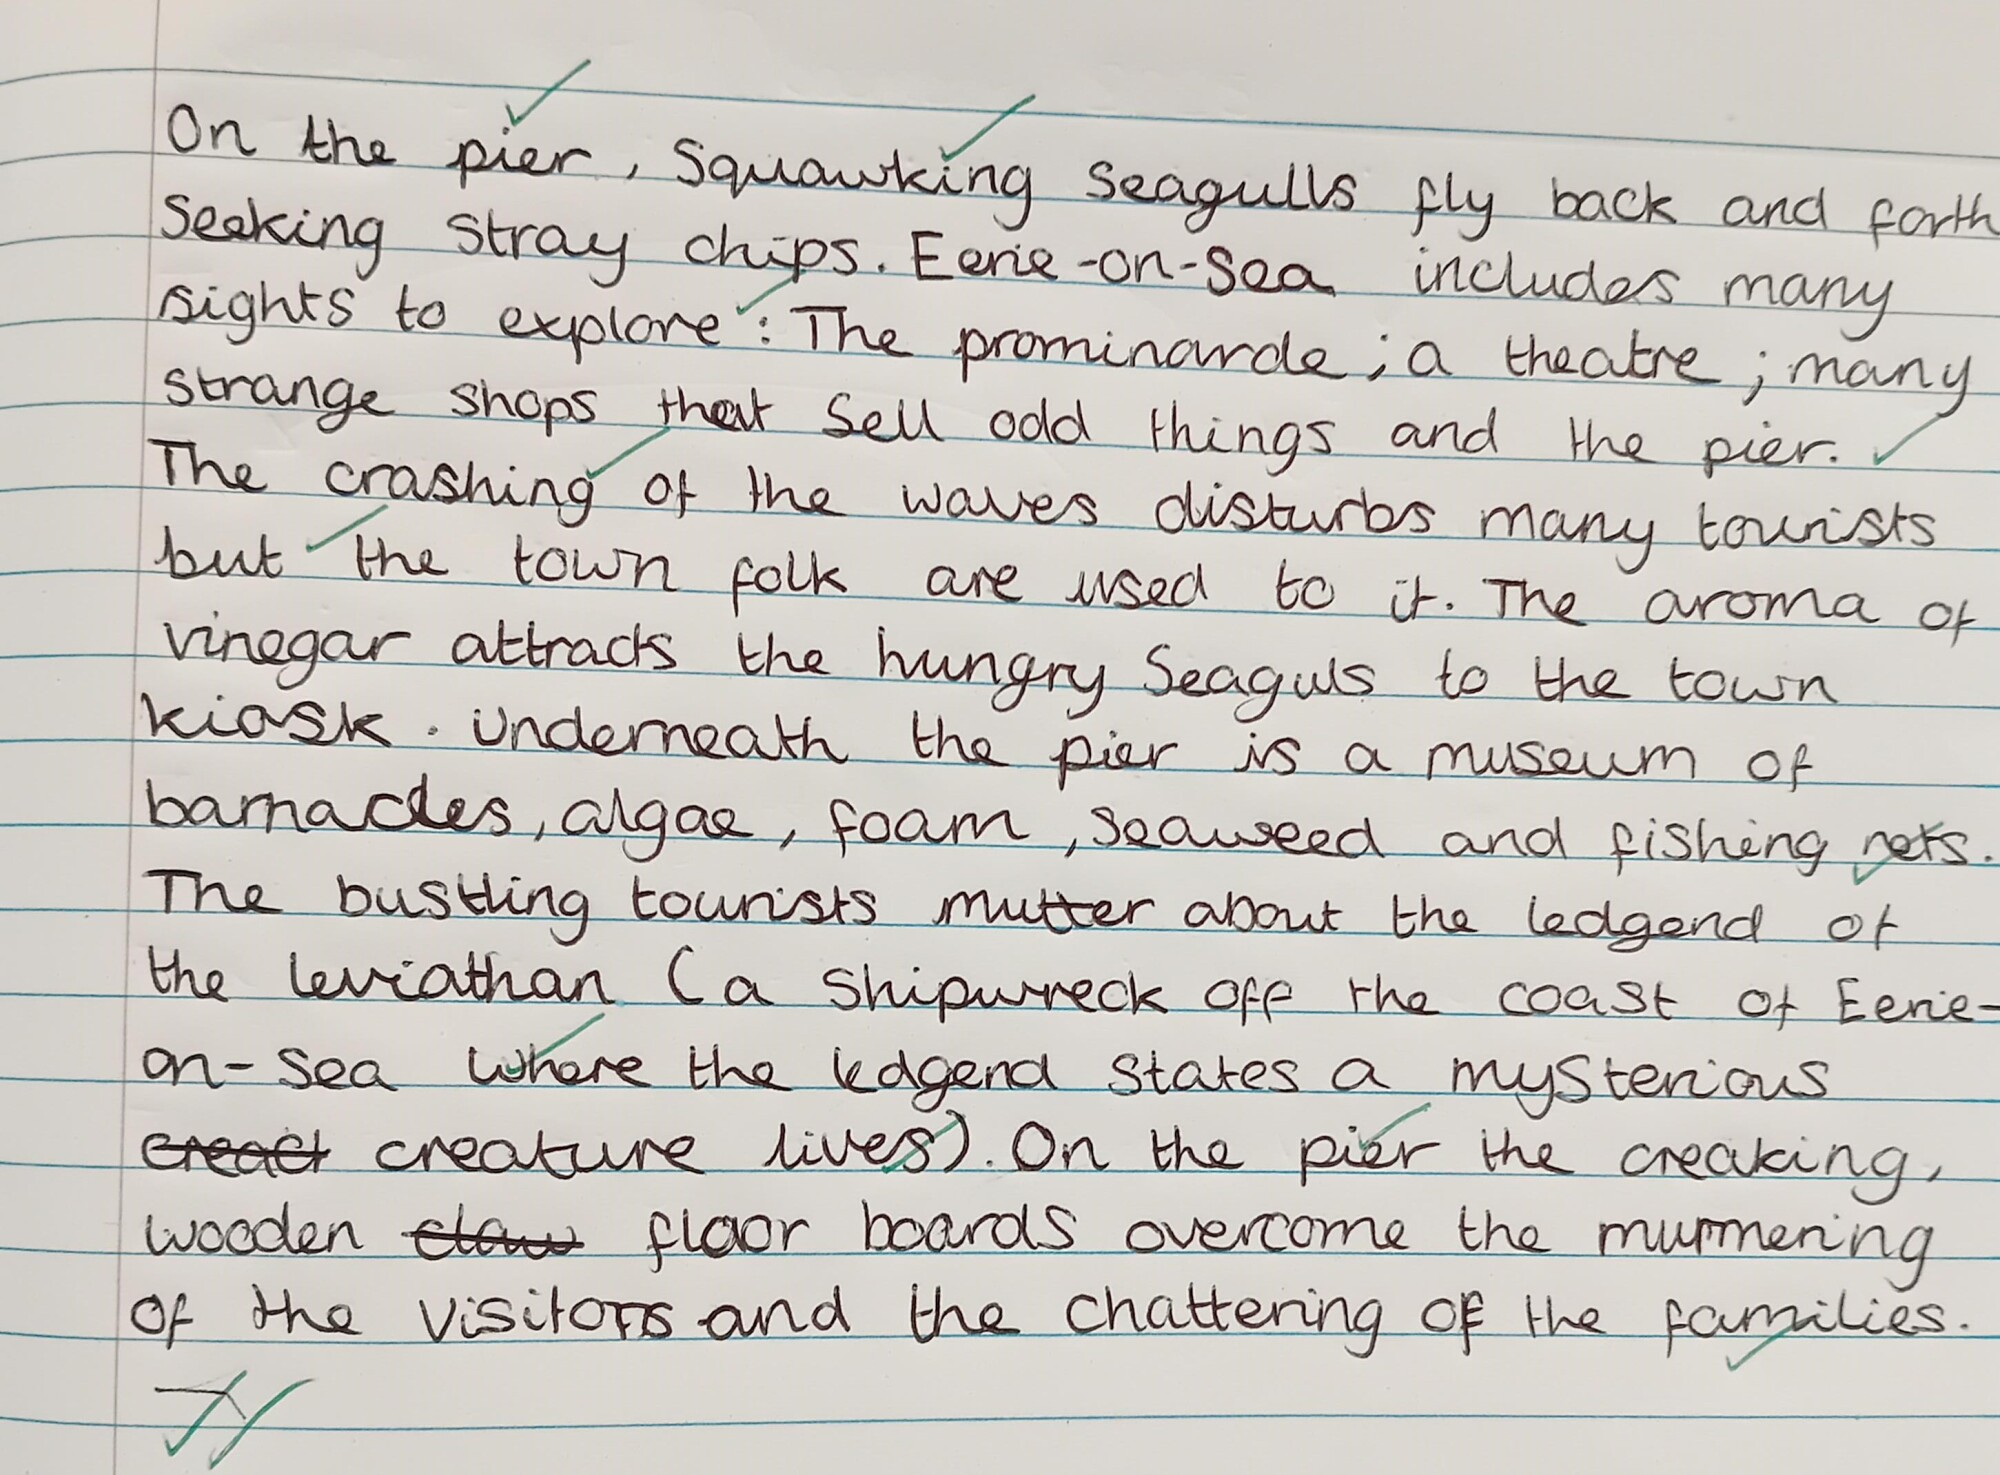 On the pier, Squawking seagulls fly back and forth
seeking stray chips. Eerie-on-sea includes many
sights to explore: The prominarde; a theatre; many
strange shops that sell odd things and the pier.
The crashing of the waves disturbs many tourists
but the town folk are used to it. The aroma of
vinegar attracts the hungry seaguls to the town
kiosk. Underneath the pier is a museum of
barnacles, algae, foam, seaweed and fishing nets.
The bustling tourists mutter about the ledgend of
the leviathan (a shipwreck off the coast of Eerie-
on-sea where the ledgend states a mysterious
creact creature lives). On the pier the creaking,
wooden claw floor boards overcome the murmering
of the visitors and the chattering of the families.